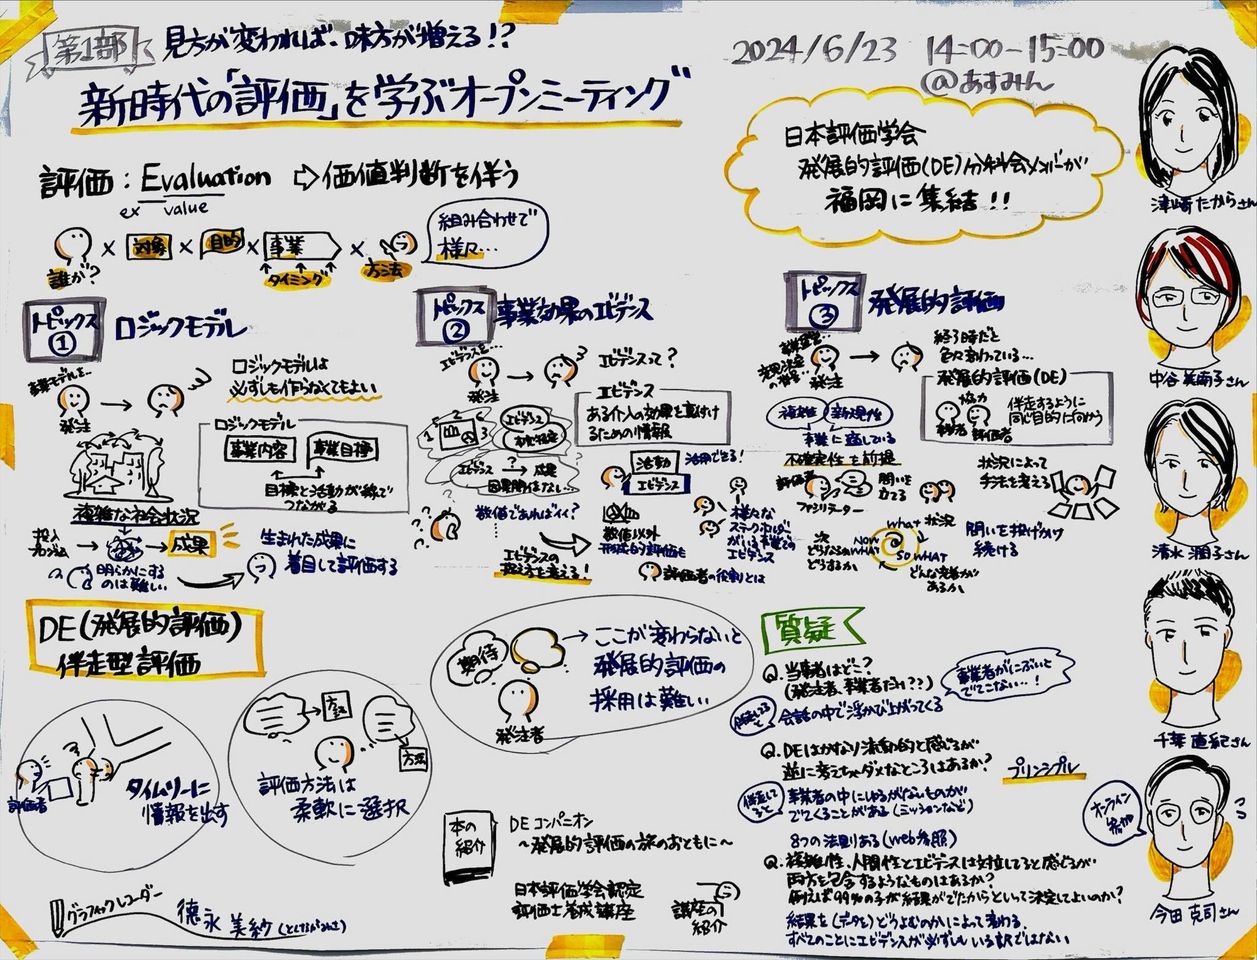 第1部
見方が変われば、味方が増える!?
新時代の「評価」を学ぶオープンミーティング
2024/6/23 14:00-15:00
@あすみん
日本評価学会
発展的評価(DE)分科会メンバーが
福岡に集結!!
評価:Evaluation ⇨価値判断を伴う
ex value
誰が? × 対象 × 目的 × 事業 × 方法
タイミング
組み合わせで
様々…
トピックス
①
ロジックモデル
事業モデルを…
発注
ロジックモデルは
必ずしも作らなくてもよい
ロジックモデル
事業内容 事業目標
目標と活動が線で
つながる
複雑な社会状況
投入
成果
明らかにする
のは難しい…
生まれた成果に
着目して評価する
トピックス
②
事業効果のエビデンス
エビデンスを…
発注
エビデンスって?
エビデンス
ある介入の効果を裏付け
るための情報
エビデンス
エビデンス → 成果
因果関係はない…
数値であればイイ?
エビデンスの
捉え方を考える!
活動
エビデンス
活用できる!
数値以外
形成的評価も
様々な
ステークホルダー
がいる事業での
エビデンス
評価者の役割とは
トピックス
③
発展的評価
発注
終了時だと
色々割けている…
発展的評価(DE)
協力
評価者
伴走するように
同じ目的に向かう
複雑性 新規性
事業に適している
不確実性を前提
評価者
ファシリテーター
問いを
立てる
状況によって
手法を考える
what 状況
NOW
WHAT
SO WHAT
次
どうなるのか
どうするか
どんな意義が
あるか
問いを投げかけ
続ける
DE(発展的評価)
伴走型評価
評価者
タイムリーに
情報を出す
方法
方法
評価方法は
柔軟に選択
期待
発注者
→ここが変わらないと
発展的評価の
採用は難しい
本の
紹介
DE コンパニオン
~発展的評価の旅のおともに~
日本評価学会認定
評価士養成講座
講座の
紹介
質疑
Q.当事者はどこ?
(発注者、事業者だけ??)
会話の中で浮かび上がってくる
事業者がにぶいと
でてこない…!
Q.DEはかなり流動的と感じるが
逆に変えちゃダメなところはあるか?
プリンシプル
事業者の中にしゅうがないものが
でてくることがある(ミッションなど)
8つの法則ある(web参照)
Q.複雑性、人間性とエビデンスは対立してると感じるが
両方を包含するようなものはあるか?
例えば99%の子が結果がでたからといって決定してよいのか?
結果を(データを)どうよむのかによって変わる。
すべてのことにエビデンスが必ずしもいる訳ではない
津崎たからさん
中谷美南子さん
清水潤子さん
千葉直紀さん
オンライン
参加
今田克司さん
グラフィックレコーダー
徳永美紗(とくながみさ)